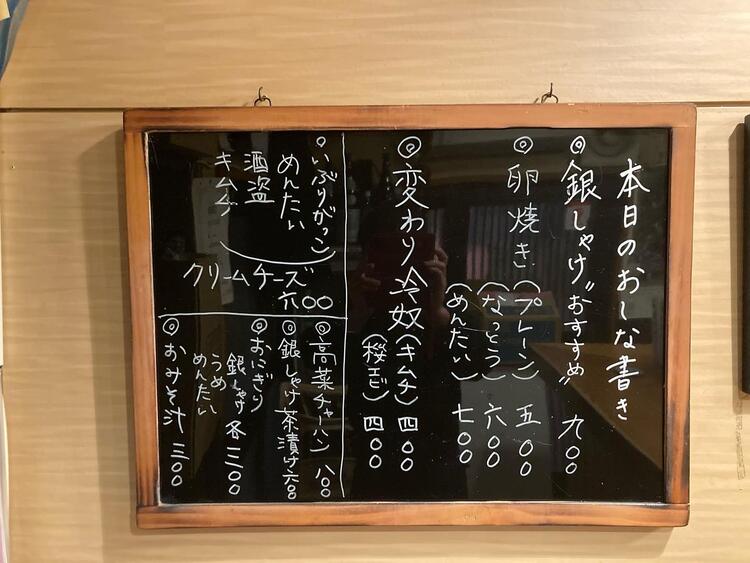 本日のおしな書き
◎銀しゃけ〝おすすめ〟 九〇〇
◎卵焼き(プレーン) 五〇〇
(なっとう) 六〇〇
(めんたい) 七〇〇
◎変わり冷奴(キムチ) 四〇〇
(桜エビ) 四〇〇
◎いぶりがっこ
めんたい
酒盗
キムチ
クリームチーズ
六〇〇
◎高菜チャーハン 八〇〇
◎銀しゃけ茶漬け 六〇〇
◎おにぎり
銀しゃけ
うめ
めんたい
各三〇〇
◎おみそ汁 三〇〇